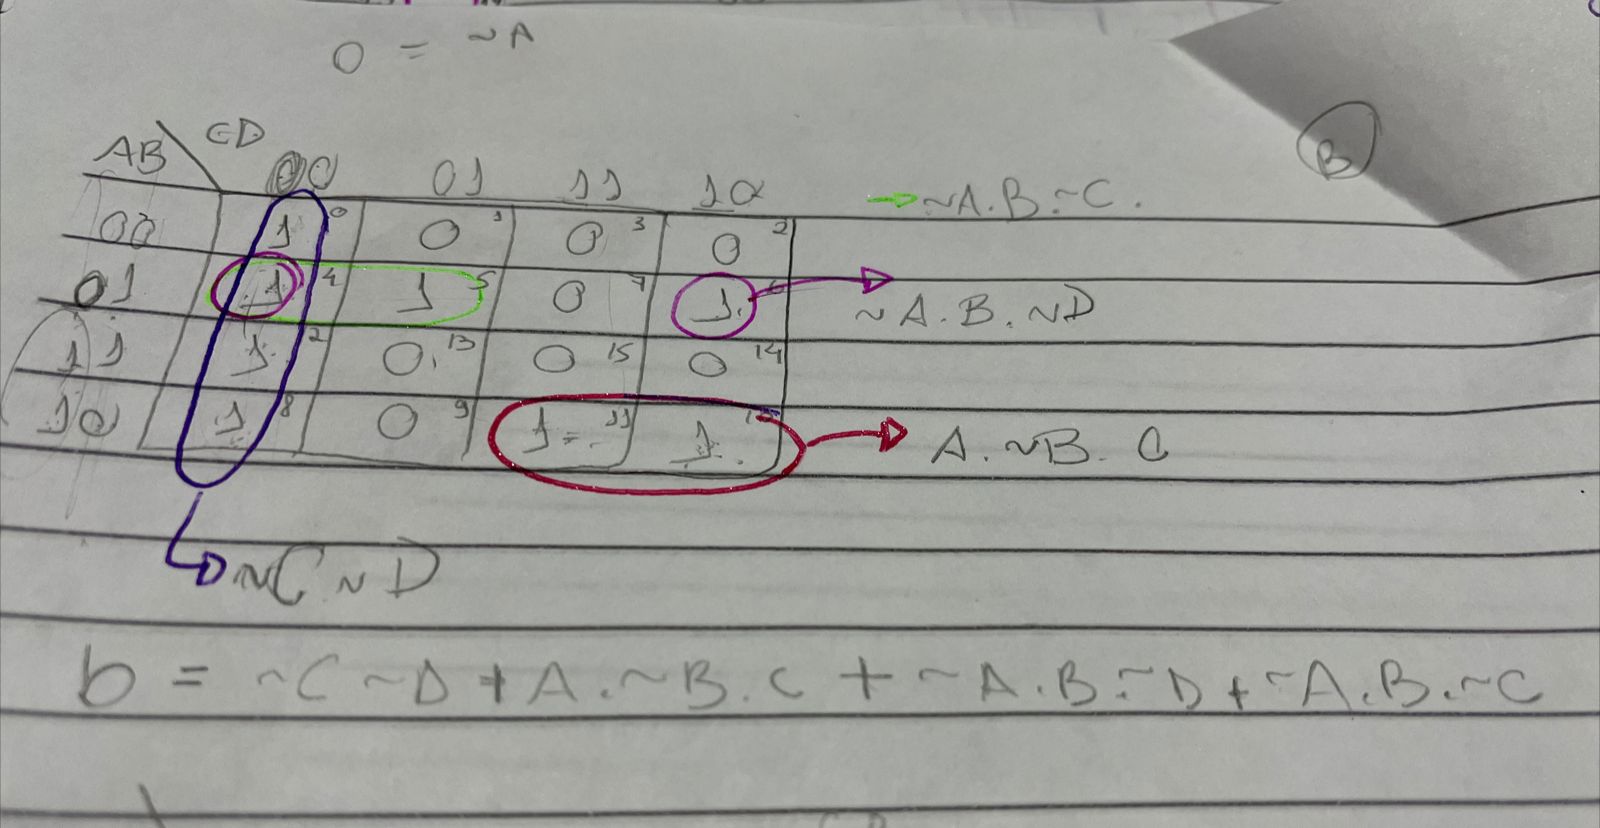 0 = ~A
B
AB CD 00 01 11 10
→ ~A.B.~C.
00 1 0 0 1 0 3 0 2
01 1 4 1 5 0 7 1.
~A.B.~D
11 1. 2 0. 13 0 15 0 14
10 1 8 0 9 1 11 1.
A.~B.C
~C~D
b = ~C~D + A.~B.C + ~A.B.~D + ~A.B.~C